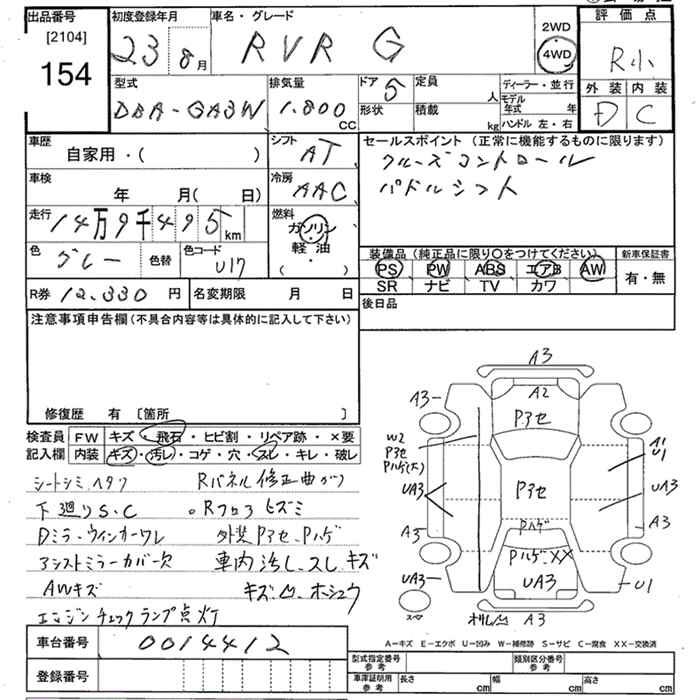 出品番号
[2104]
154
初度登録年月
23 8月
車名・グレード
RVR G
2WD
4WD
評価点
R小
外装 内装
D C
型式
DBA-GA3W
排気量
1.800 CC
ドア
5
形状
定員
人
積載
kg
ディーラー・並行
モデル年式 年
ハンドル 左・右
車歴
自家用・( )
シフト
AT
セールスポイント (正常に機能するものに限ります)
クルーズコントロール
パドルシフト
車検
年 月( 日)
冷房
AAC
走行
14万9千495km
燃料
ガソリン
軽油
( ・ )
色
グレー
色替
色コード
U17
装備品 (純正品に限り○をつけてください)
PS PW ABS エアB AW
SR ナビ TV カワ
新車保証書
有・無
R券 12.330 円
名変期限 月 日
後日品
注意事項申告欄(不具合内容等は具体的に記入して下さい)
修復歴 有 [箇所 ]
検査員記入欄
FW キズ・飛石・ヒビ割・リペア跡・×要
内装 キズ・汚レ・コゲ・穴・スレ・キレ・破レ
シートシミ.ヘタリ
Rパネル修正曲ガリ
下廻りS.C
Rフロアヒズミ
Dミラーウィンカーワレ
外装Pヨセ.Pハゲ
アシストミラーカバー欠
車内汚レ.スレ.キズ
AWキズ
キズ.凹.ホシュウ
エンジンチェックランプ点灯
A3
A3
A2
Pヨセ
W2
Pヨセ
Pハゲ(大)
A1
U1
UA3
Pヨセ
UA3
A3
Pハゲ
A3
Pハゲ.XX
UA3
UA3
U1
スペア
A3
A-キズ E-エクボ U-凹み W-補修跡 S-サビ C-腐食 XX-交換済
車台番号
0014412
登録番号
型式指定番号参考
類別区分番号参考
車庫証明用参考
長さ cm
幅 cm
高さ cm